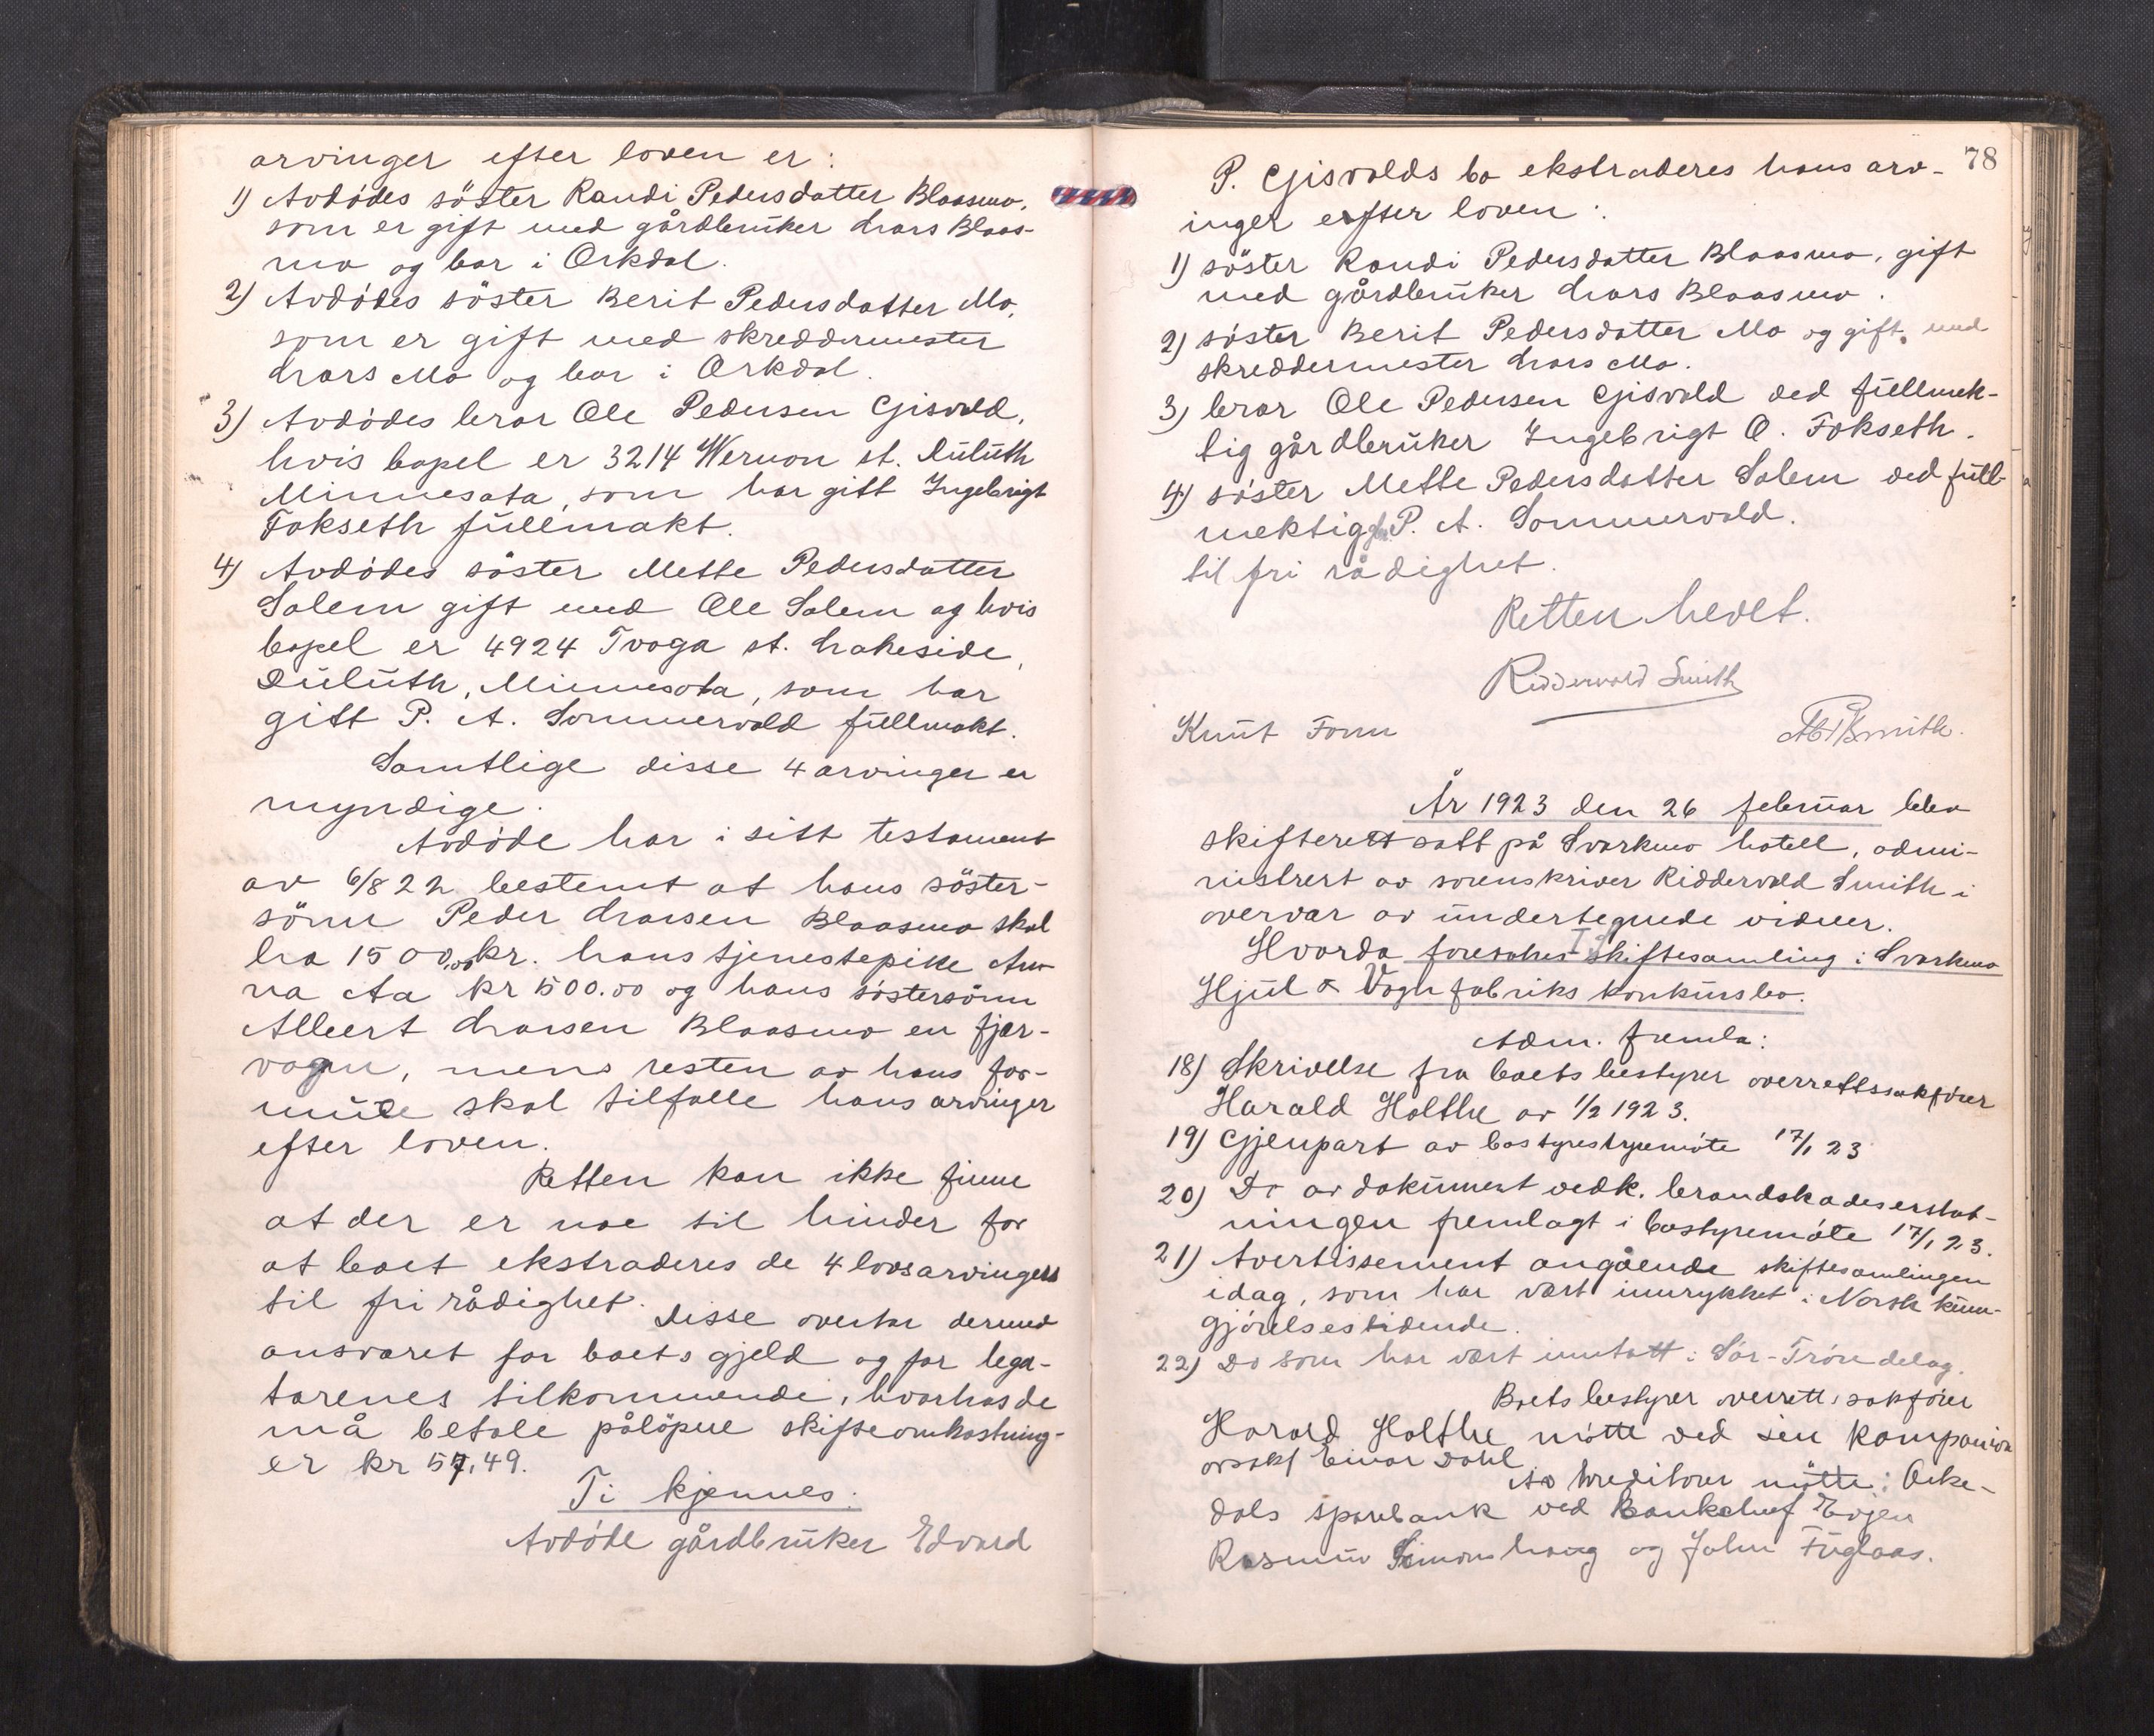 arvinger efter loven er:
1) Avdödes söster Randi Pedersdatter Blaasmo,
som er gift med gårdbruker Lars Blaas-
mo og bor i Orkdal.
2) Avdödes söster Berit Pedersdatter Mo,
som er gift med skreddermester
Lars Mo og bor i Orkdal.
3) Avdödes bror Ole Pedersen Gjisvold,
hvis bopel er 3214 Wernon st. Duluth
Minnesata, som har gitt Ingebrigt
Fokseth fullmakt.
4) Avdödes söster Mette Pedersdatter
Solem gift med Ole Solem og hvis
bopel er 4924 Tvoga st. Lakeside,
Duluth, Minnesota, som har
gitt P. A. Sommervold fullmakt.
Samtlige disse 4 arvinger er
myndige.
Avdöde har i sitt testament
av 6/8 22 bestemt at hans söster-
sönn Peder Larsen Blaasmo skal
ha 1500,00 kr. hans tjenestepike An-
na Aa kr 500.00 og hans söstersönn
Albert Larsen Blaasmo en fjær-
vogn, mens resten av hans for-
mue skal tilfalle hans arvinger
efter loven.
Retten kan ikke finne
at der er noe til hinder for
at boet ekstraderes de 4 lovsarvinger
til fri rådighet. Disse overtar dermed
ansvaret for boets gjeld og for lega-
tarenes tilkommende, hvorhos de
må betale pålöpne skifteomkostning-
er kr 57,49.
Ti kjennes:
Avdöde gårdbruker Edvard
78
P. Gjisvolds bo ekstraderes hans arv-
inger efter loven:
1) söster Randi Pedersdatter Blaasmo, gift
med gårdbruker Lars Blaasmo.
2) söster Berit Pedersdatter Mo og gift med
skreddermester Lars Mo.
3) bror Ole Pedersen Gjisvold ved fullmek-
tig gårdbruker Ingebrigt O. Fokseth.
4) söster Mette Pedersdatter Solem ved full-
mektig P. A. Sommervold.
til fri rådighet.
Retten hevet.
Riddervold Smith
Knut Form
Smith.
År 1923 den 26 februar blev
skifterett satt på Svorkmo hotell, admi-
nistrert av sorenskriver Riddervold Smith i
overvær av undertegnede vidner.
Hvorda foretokes I skiftesamling i Svorkmo
Hjul & Vognfabriks konkursbo.
Adm. fremla:
18) Skrivelse fra boets bestyrer overrettssakförer
Harald Holthe av 1/2 1923.
19) Gjenpart av bostyrestyremöte 17/1 23
20) Do av dokument vedk. brandskadeserstat-
ningen fremlagt i bostyremöte 17/1 23.
21) Avertissement angående skiftesamlingen
idag, som har vært innrykket i Norsk kunn-
gjörelsestidende.
22) Do som har vært inntatt i Sör-Tröndelag.
Boets bestyrer overrettssakförer
Harald Holthe mötte ved sin kompanion
orsakf Einar Dahl
Av kreditorer mötte: Orke-
dals sparebank ved Bankchef Evjen
Rasmus Simonshaug og John Fuglaas.